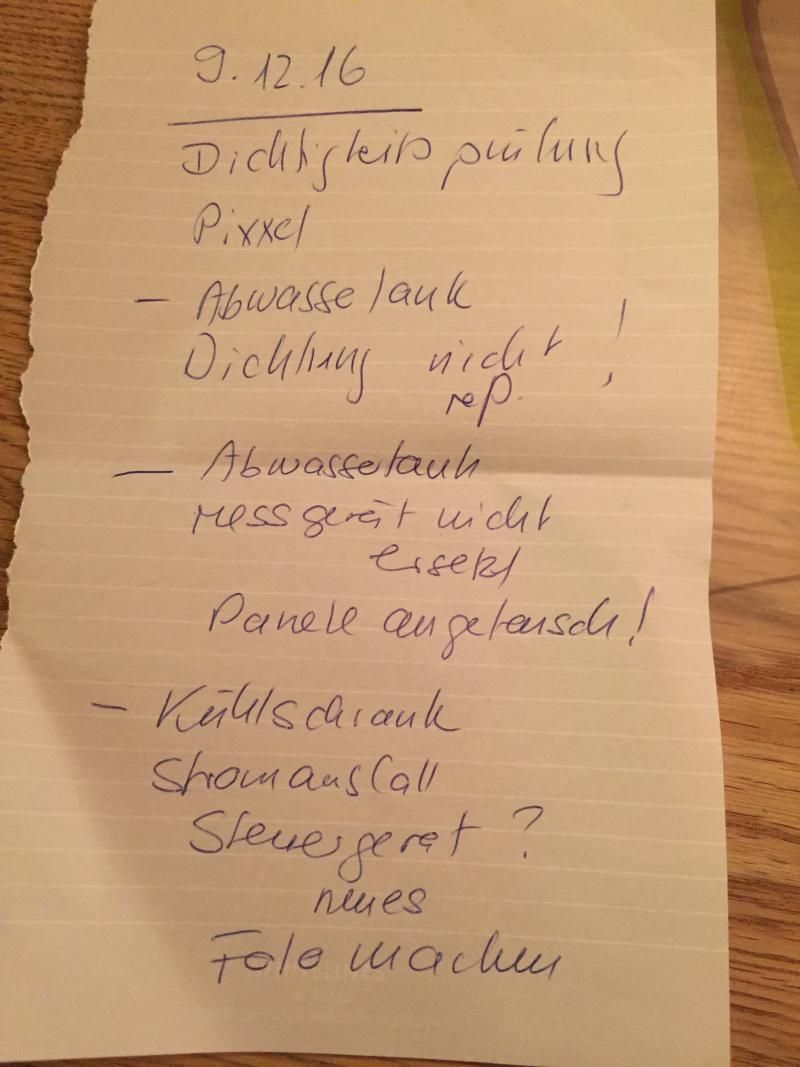 9.12.16
Dichtigkeits prüfung
Pixxel
- Abwassetank
Dichtung nicht !
rep.
- Abwassertank
messgerät nicht
ersetzt
Panele angetausch!
- Kühlschrank
Stromausfall
Steuergerät ?
neues
Foto machen